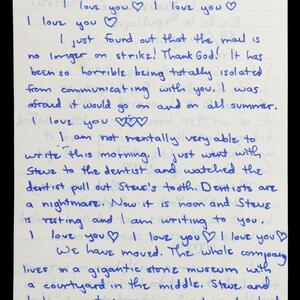 I love you ♡ I love you ♡
I love you ♡
I just found out that the mail is
no longer on strike! Thank God! It has
been so horrible being totally isolated
from communicating with you. I was
afraid it would go on and on all summer.
I love you ♡♡♡
I am not mentally very able to
write this morning. I just went with
Steve to the dentist and watched the
dentist pull out Steve's tooth. Dentists are
a nightmare. Now it is noon and Steve
is resting and I am writing to you.
I love you ♡ I love you ♡ I love you ♡
We have moved. The whole company
lives in a gigantic stone museum with
a courtyard in the middle. Steve and